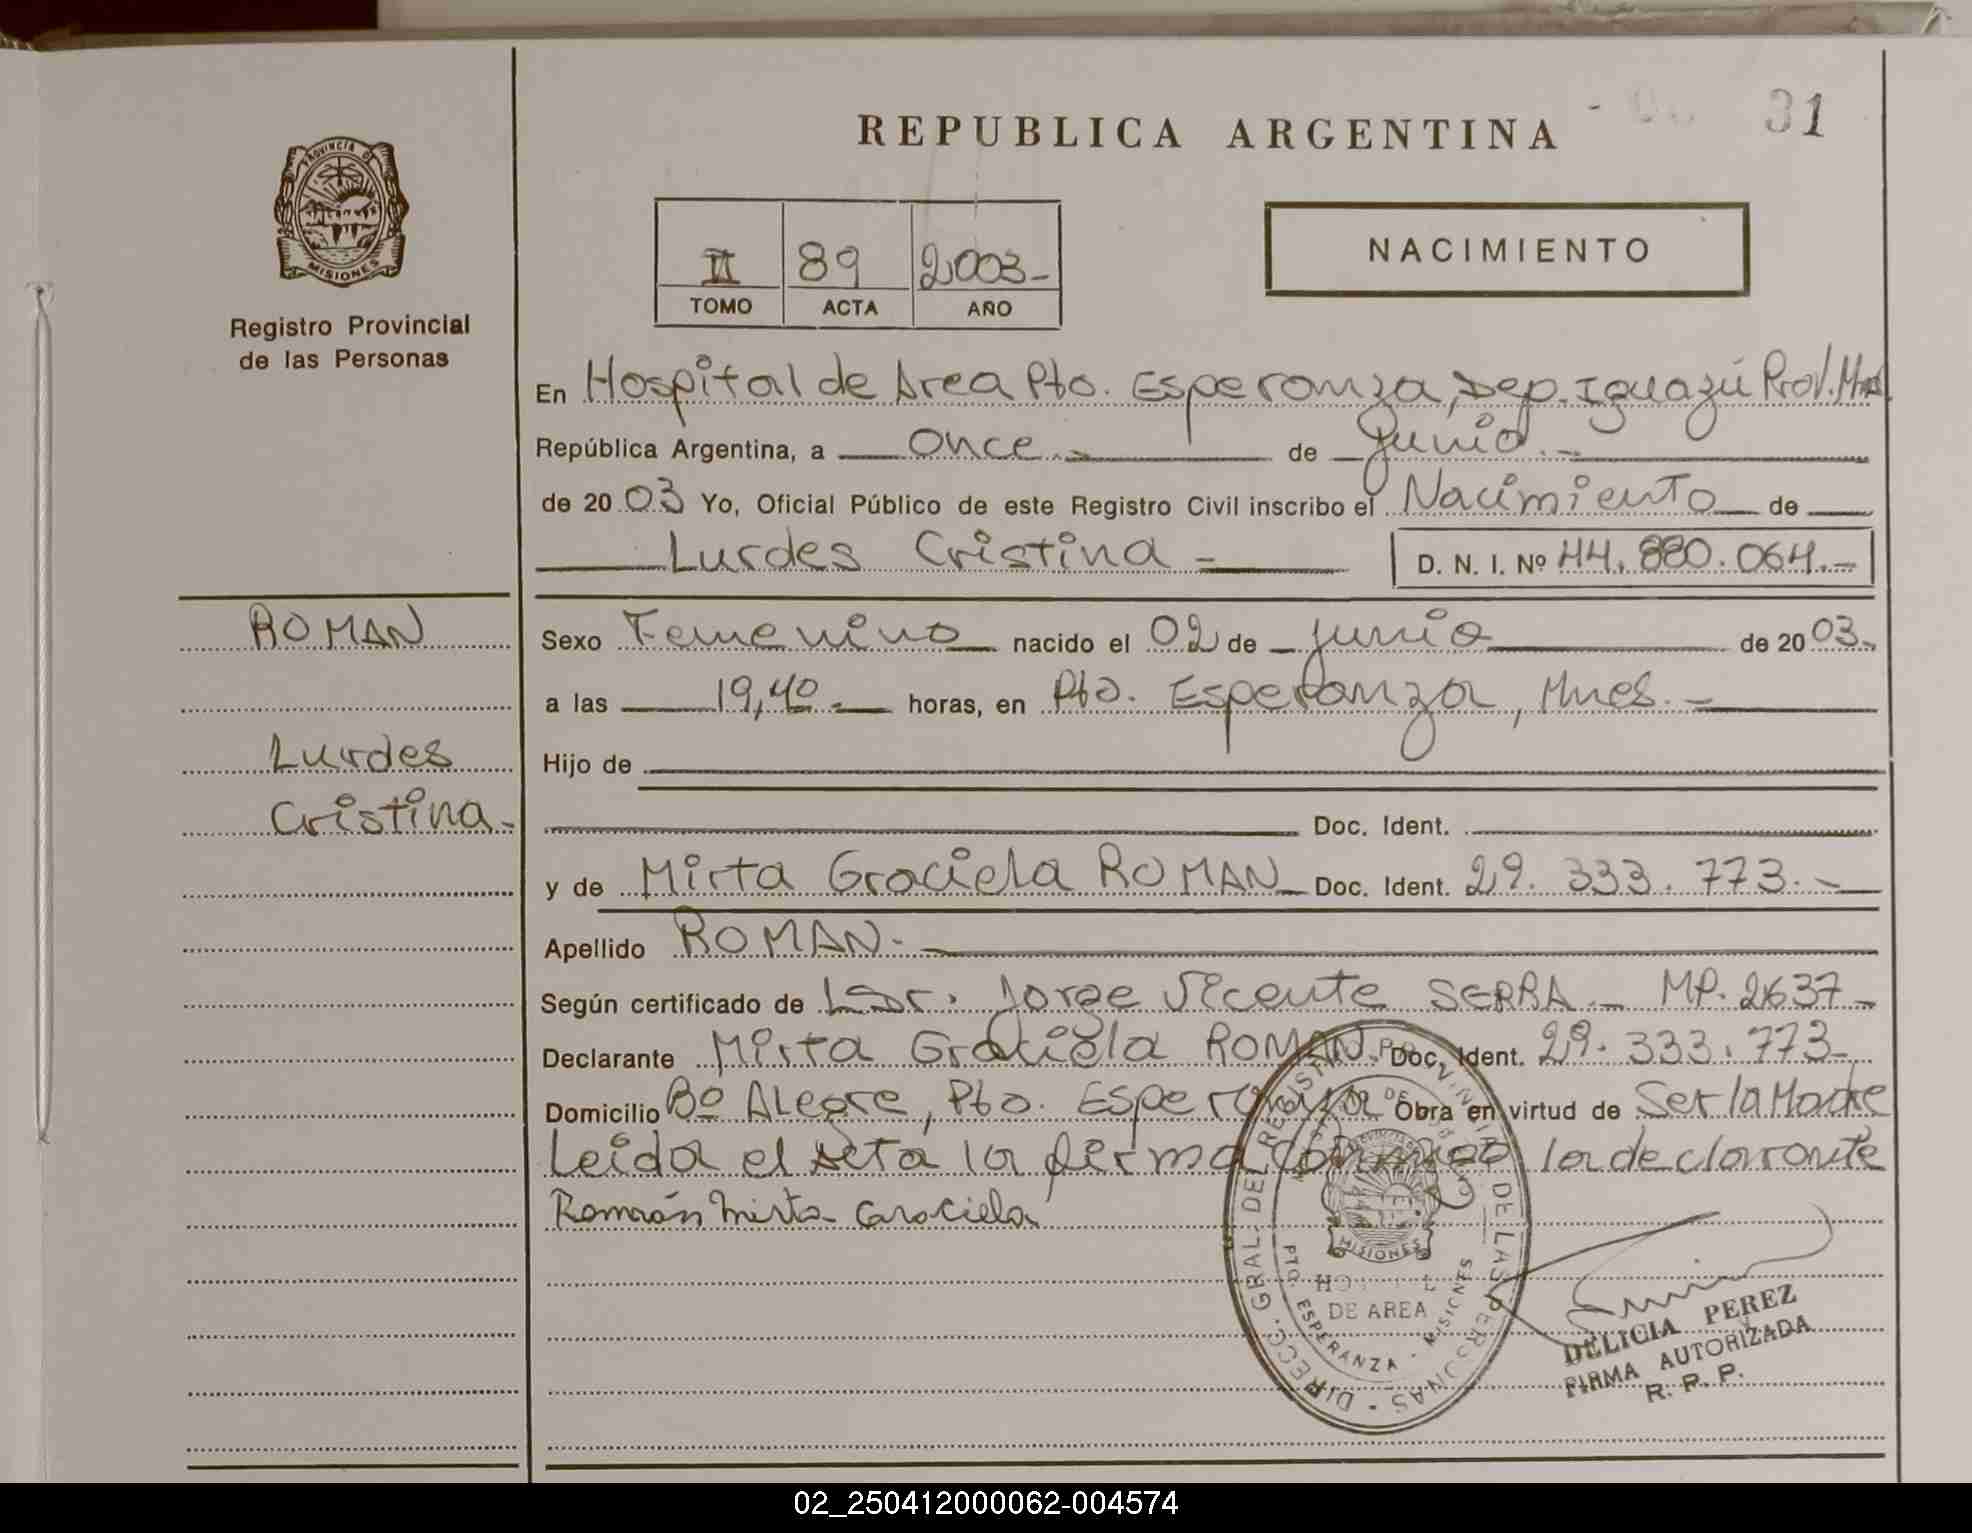 REPUBLICA ARGENTINA
31
PROVINCIA DE
MISIONES
Registro Provincial
de las Personas
II 89 2003-
TOMO ACTA AÑO
NACIMIENTO
En Hospital de Area Pto. Esperanza, Dep. Iguazú Prov. Mnes
República Argentina, a once.- de junio.-
de 2003 Yo, Oficial Público de este Registro Civil inscribo el Nacimiento de
Lurdes Cristina - D. N. I. Nº 44.880.064.-
ROMAN
Lurdes
Cristina-
Sexo Femenino nacido el 02 de junio de 2003-
a las 19,40.- horas, en Pto. Esperanza, Mnes.-
Hijo de
Doc. Ident.
y de Mirta Graciela ROMAN Doc. Ident. 29.333.773.-
Apellido ROMAN.-
Según certificado de Dr. Jorge Vicente SERRA.- MP. 2637-
Declarante Mirta Graciela ROMAN. Doc. Ident. 29.333.773-
Domicilio Bº Alegre, Pto. Esperanza Obra en virtud de Ser la Madre
Leida el Acta la firma conmigo la declarante
Román Mirta Graciela
DIRECC. GRAL. DEL REGISTRO PROVINCIAL DE LAS PERSONAS
MISIONES
DE AREA
PTO. ESPERANZA - MISIONES
DELICIA PEREZ
FIRMA AUTORIZADA
R. P. P.
02_250412000062-004574